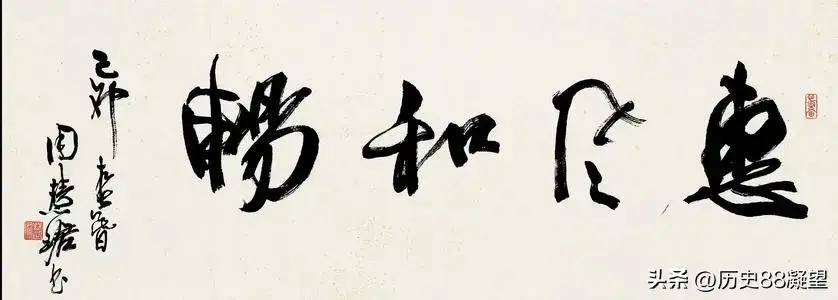 惠风和暢
己卯
周慧珺书
头条 @历史88凝望